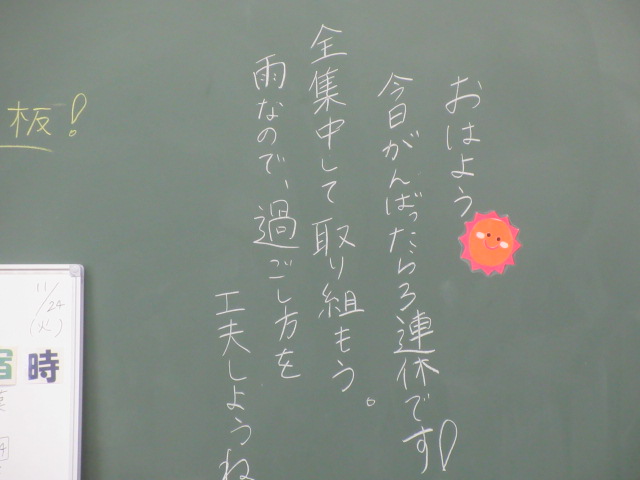 おはよう
今日がんばったら3連休です!
全集中して取り組もう。
雨なので、過ごし方を
工夫しようね
板!
11/24
(火)
時